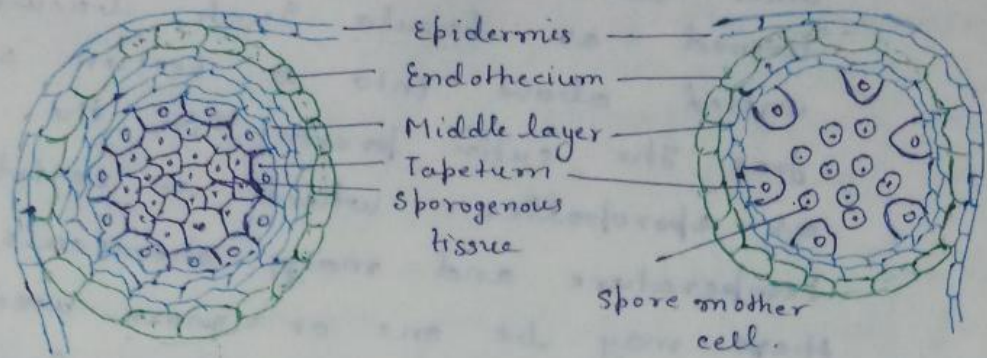 Epidermis
Endothecium
Middle layer
Tapetum
Sporogenous
tissue
Spore mother
cell.